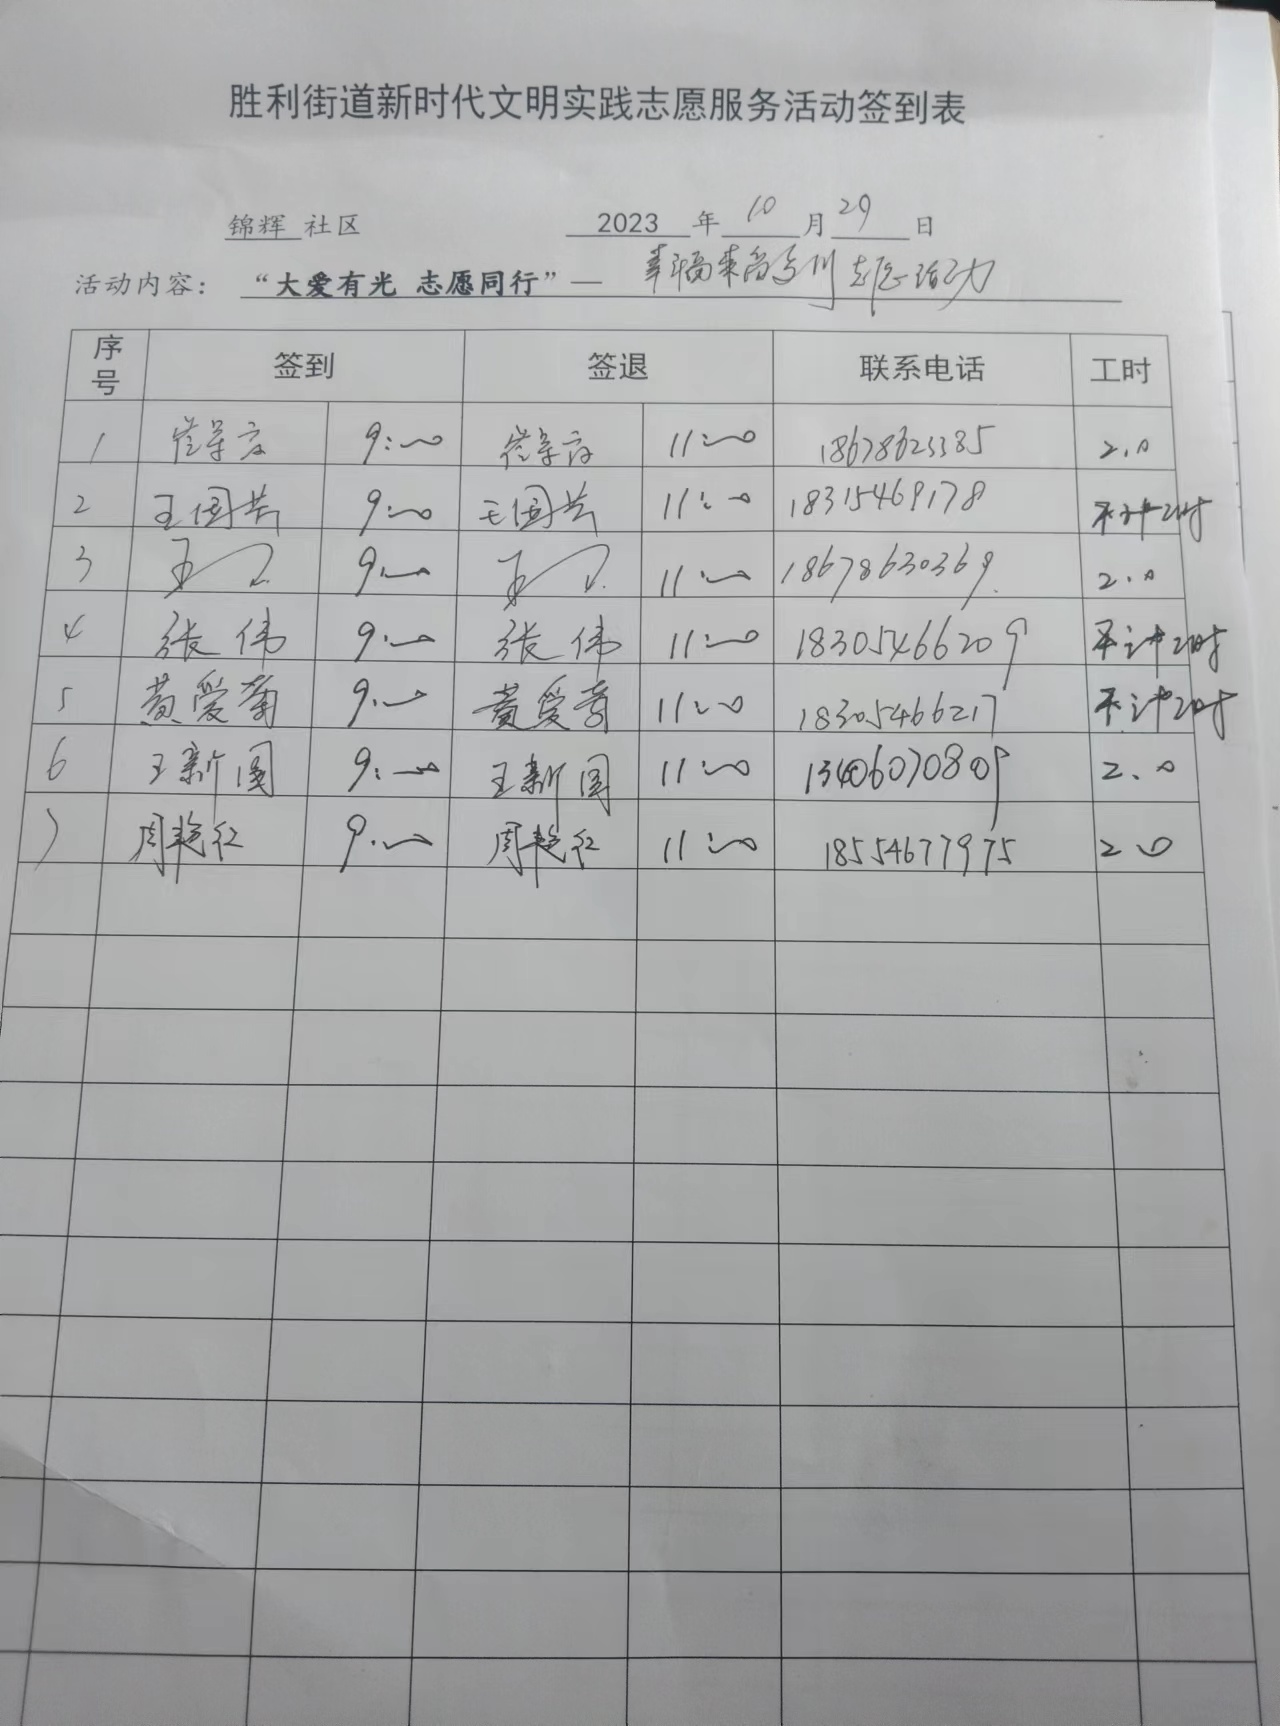 胜利街道新时代文明实践志愿服务活动签到表
锦辉 社区 2023 年 10 月 29 日
活动内容： “大爱有光 志愿同行”— 幸福来 活动
序号 签到 签退 联系电话 工时
1 9:00 11:00 2.0
2 王国芳 9:00 王国芳 11:00 18315469178 不计工时
3 王 9:00 王 11:00 18678630369 2.0
4 张伟 9:00 张伟 11:00 18305466209 不计工时
5 黄爱菊 9:00 黄爱菊 11:00 18305466217 不计工时
6 王新国 9:00 王新国 11:00 13406070809 2.0
7 周艳红 9:00 周艳红 11:00 18554677975 2.0